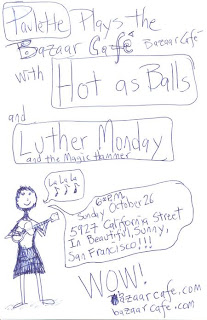 Paulette Plays the
Bazaar Café Bazaar Cafe
with Hot as Balls
and
Luther Monday
and the Magic Hammer
La La La
6:00PM
Sunday October 26
5927 California Street
In Beautiful, Sunny,
San Francisco!!!
WOW!
Bazaarcafe.com
bazaarcafe.com